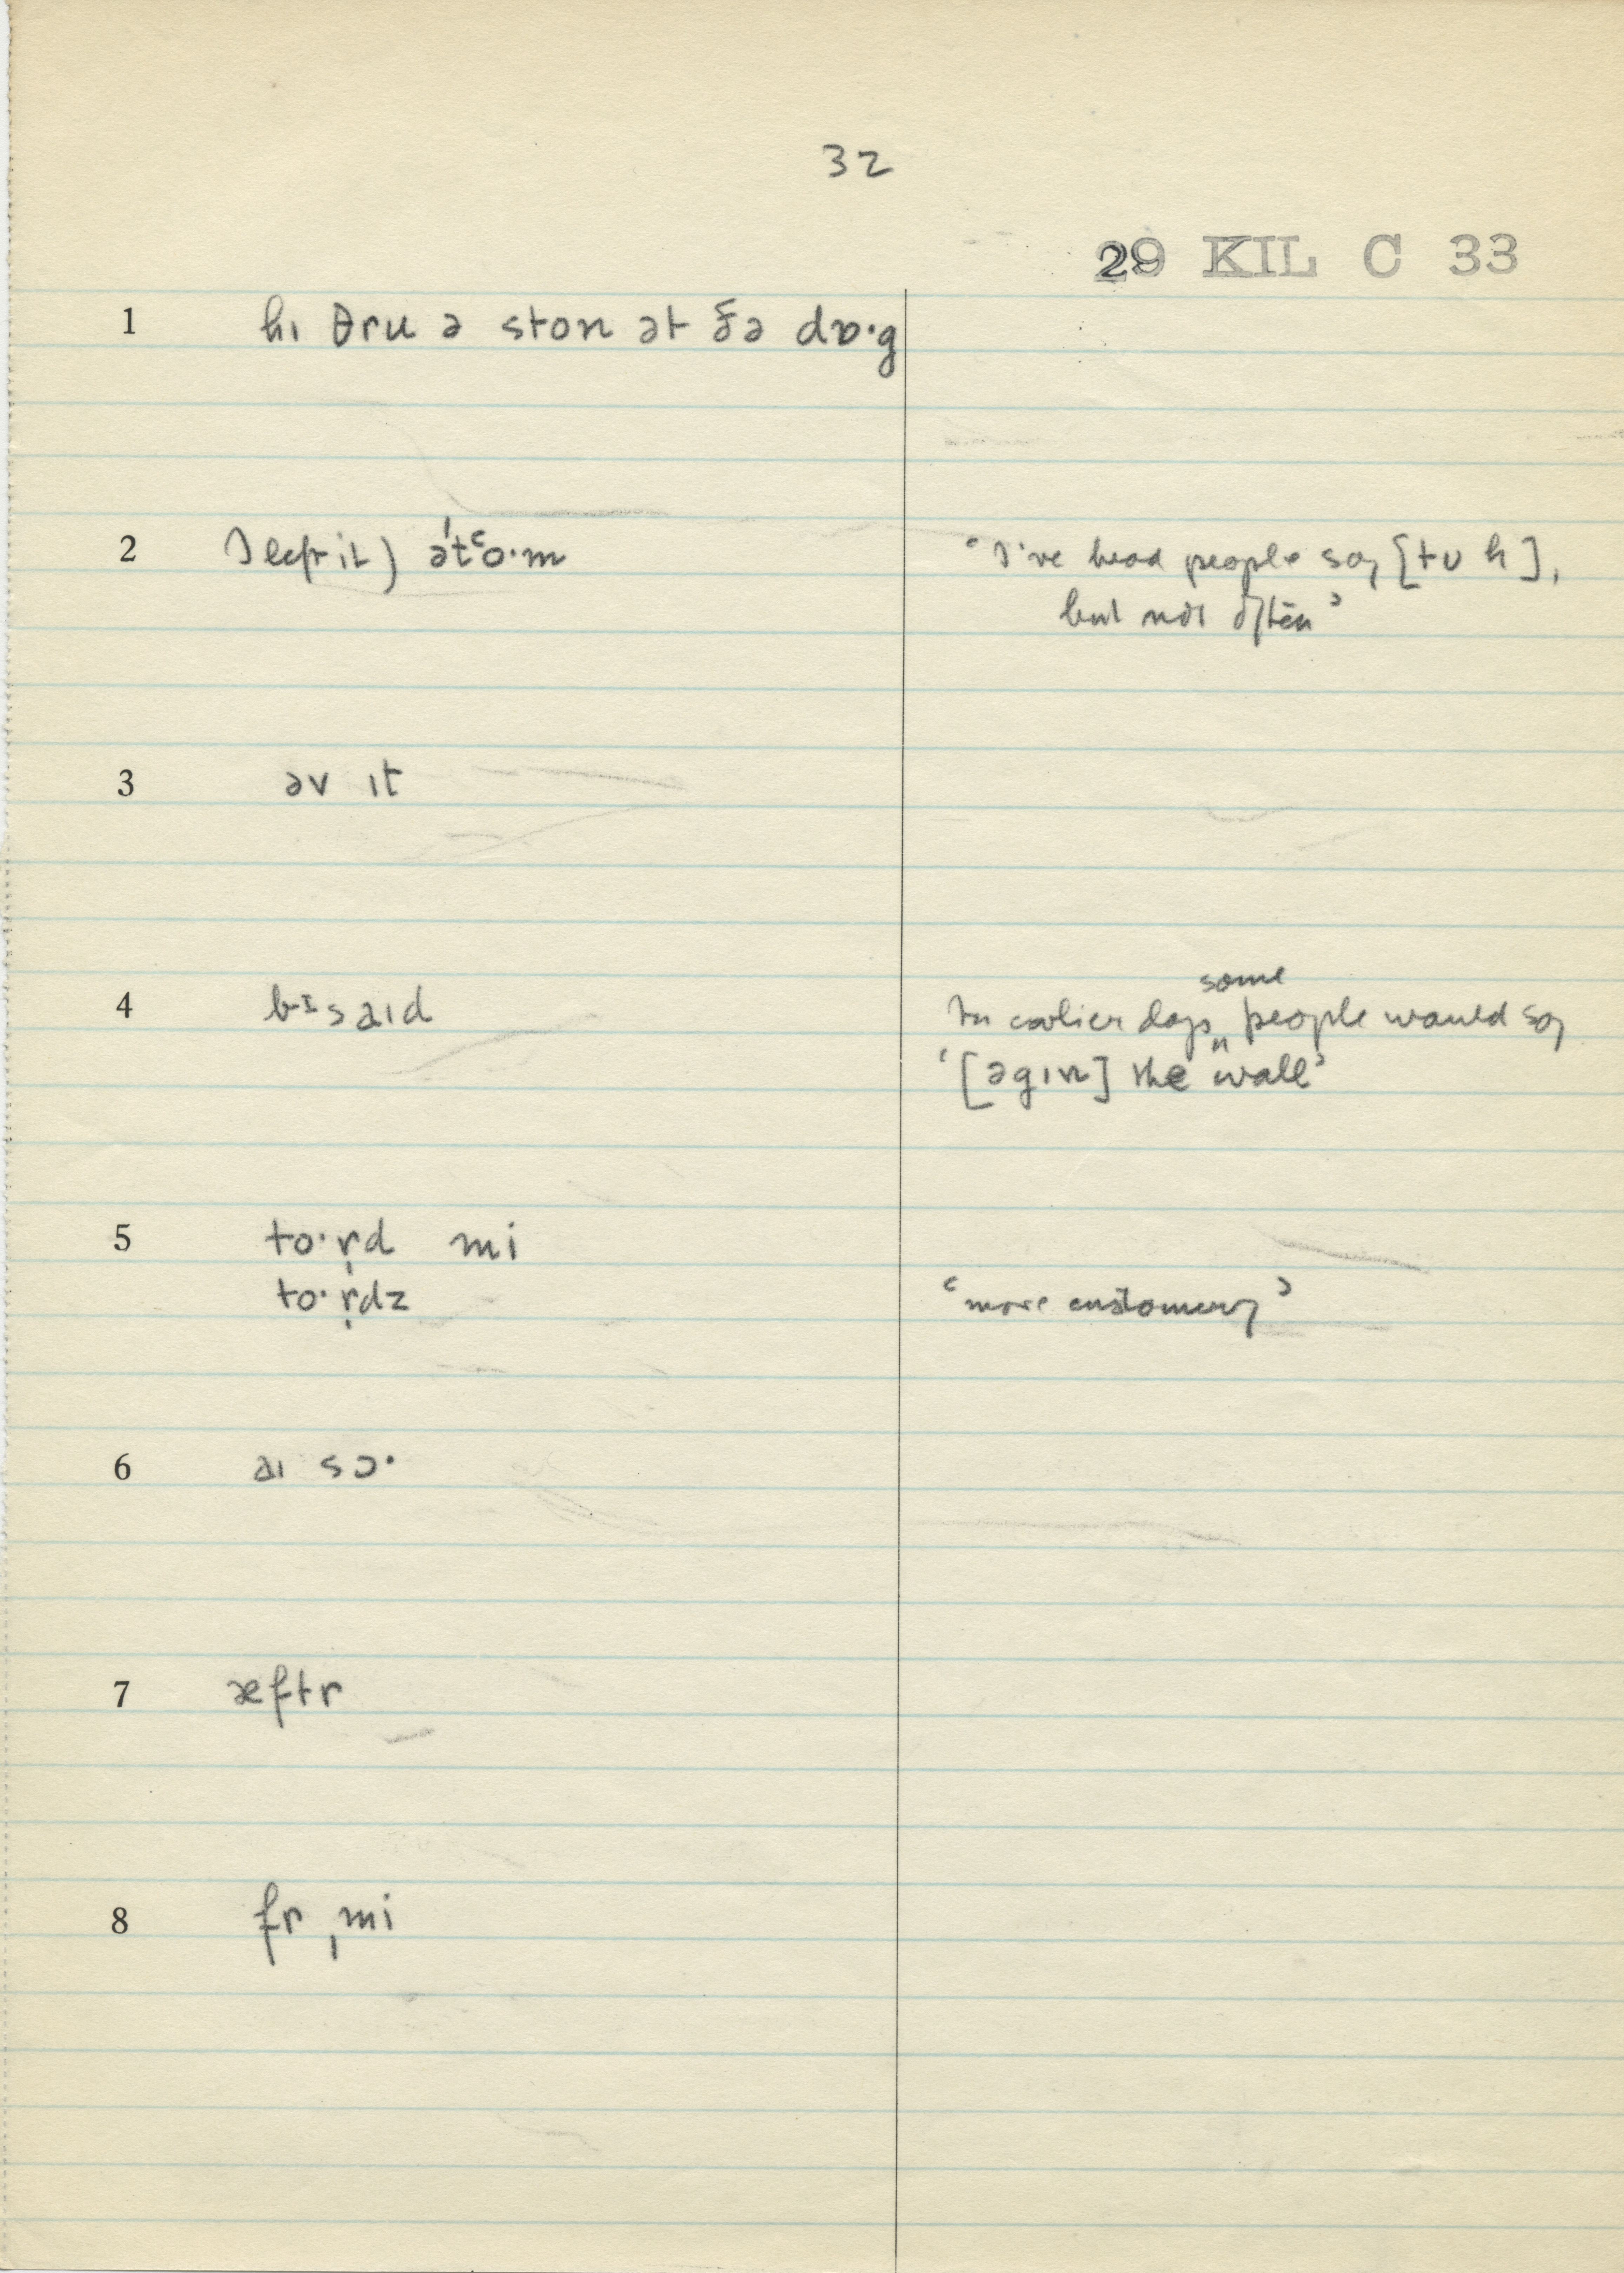 32
29 KIL C 33
1 hɪ θru ə ston ət ðə dɒ·g
2 I left it) ət‘o·m "I've heard people say [tʊ h],
but not often"
3 əv ɪt
4 bɪsaɪd some
In earlier days ʌ people would say
'[əgɪn] the wall'
5 to·r̩d mi
to·r̩dz "more customary"
6 aɪ sɔ·
7 æftr
8 fr ˌmi